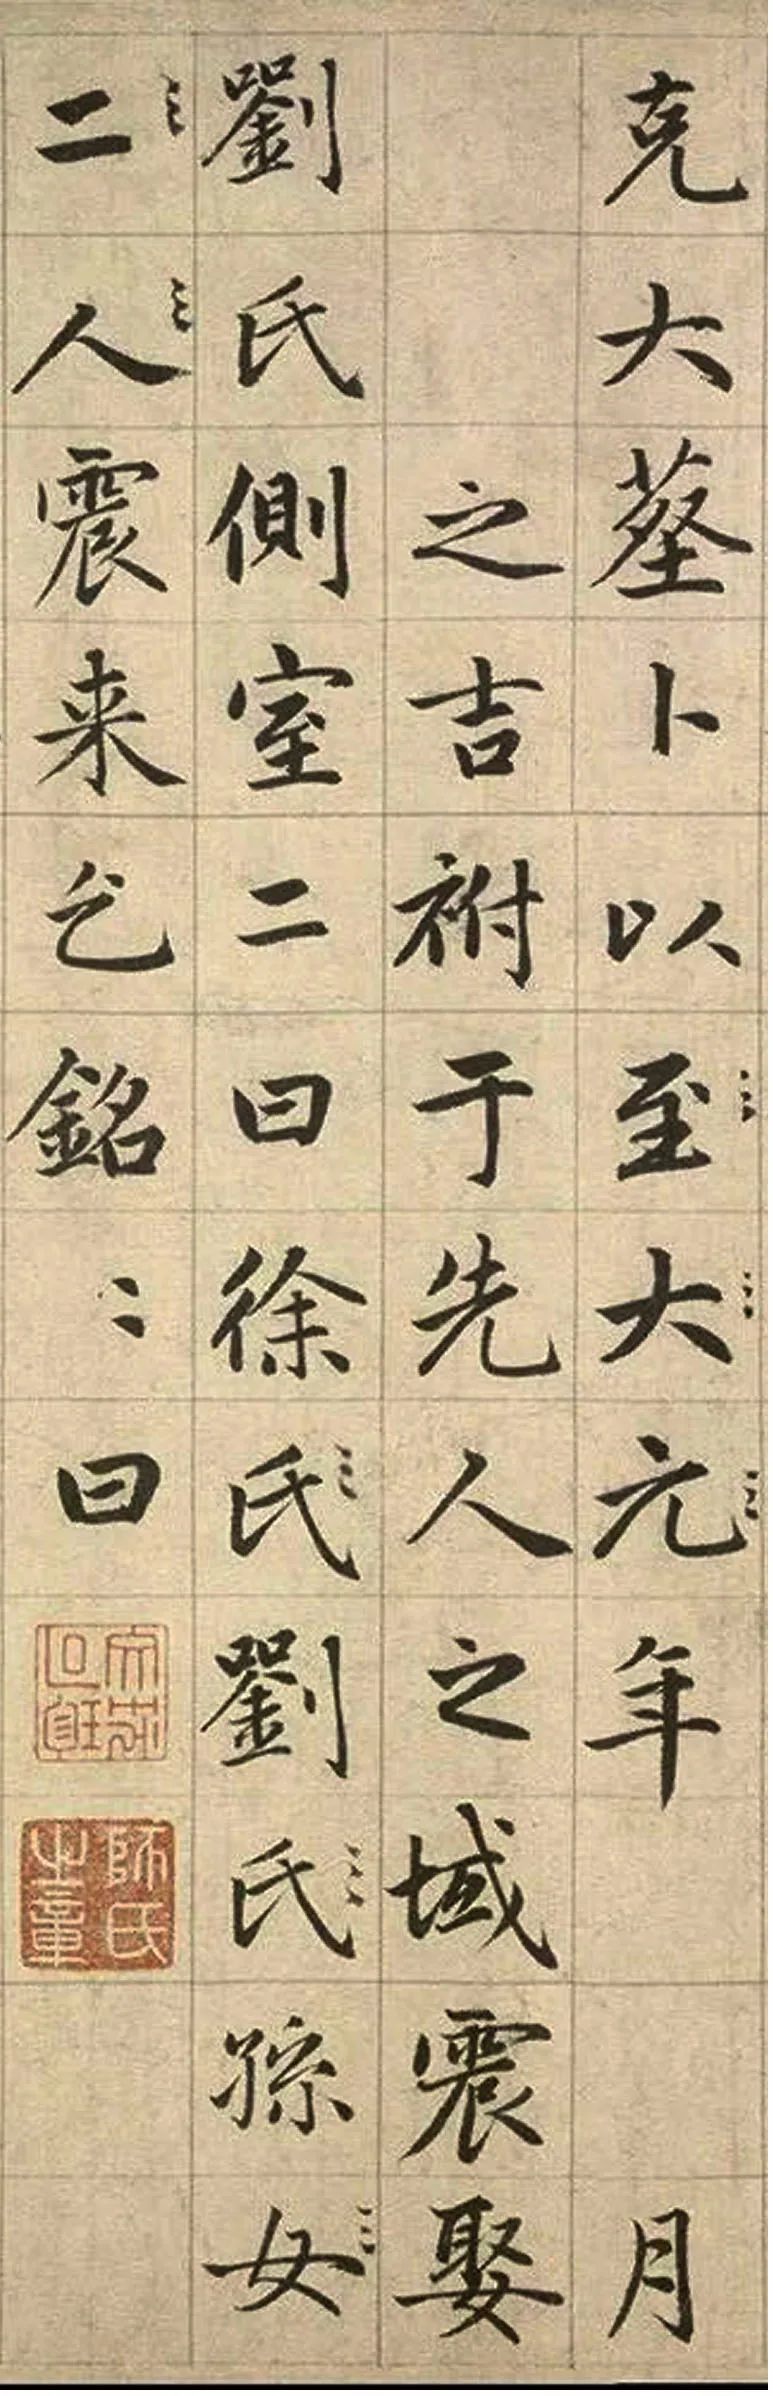 克大塟卜以至大元年月
之吉祔于先人之域震娶
劉氏側室二曰徐氏劉氏孫女
二人震来乞銘〻曰
師氏之章